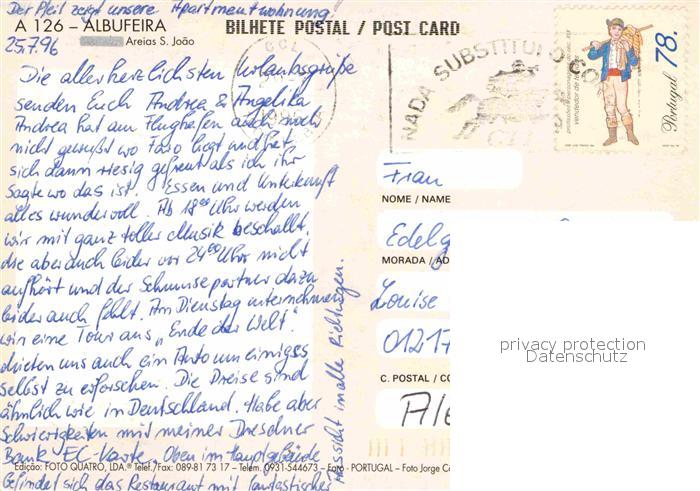 Der Pfeil zeigt unsere Apartmentwohnung!
A 126 – ALBUFEIRA
Areias S. João
25.7.96
Die allerherzlichsten Urlaubsgrüße
senden Euch Andrea & Angelika
Andrea hat am Flughafen auch noch
nicht gewußt wo Faro liegt und hat
sich dann riesig gefreut als ich ihr
sagte wo das ist. Essen und Unterkunft
alles wundervoll. Ab 18⁰⁰ Uhr werden
wir mit ganz toller Musik beschallt,
die aber auch leider vor 24⁰⁰ Uhr nicht
aufhört und der Schmusepartner dazu
leider auch fehlt. Am Dienstag unternehmen
wir eine Tour ans „Ende der Welt".
mieten uns auch ein Auto um einiges
selbst zu erforschen. Die Preise sind
ähnlich wie in Deutschland. Habe aber
Schwierigkeiten mit meiner Dresdner
Bank EC-Karte. Oben im Hauptgebäude
befindet sich das Restaurant mit fantastischer
Aussicht in alle Richtungen.
Edição: FOTO QUATRO, LDA.® Telef./Fax: 089-81 73 17 – Telem. 0931-544673 – Faro - PORTUGAL – Foto Jorge
BILHETE POSTAL / POST CARD
NADA SUBSTITUI O
CTT
78.
Portugal
Frau
NOME / NAME
Edelg
MORADA / AD
Louise
01217
C. POSTAL / CO
privacy protection
Datenschutz